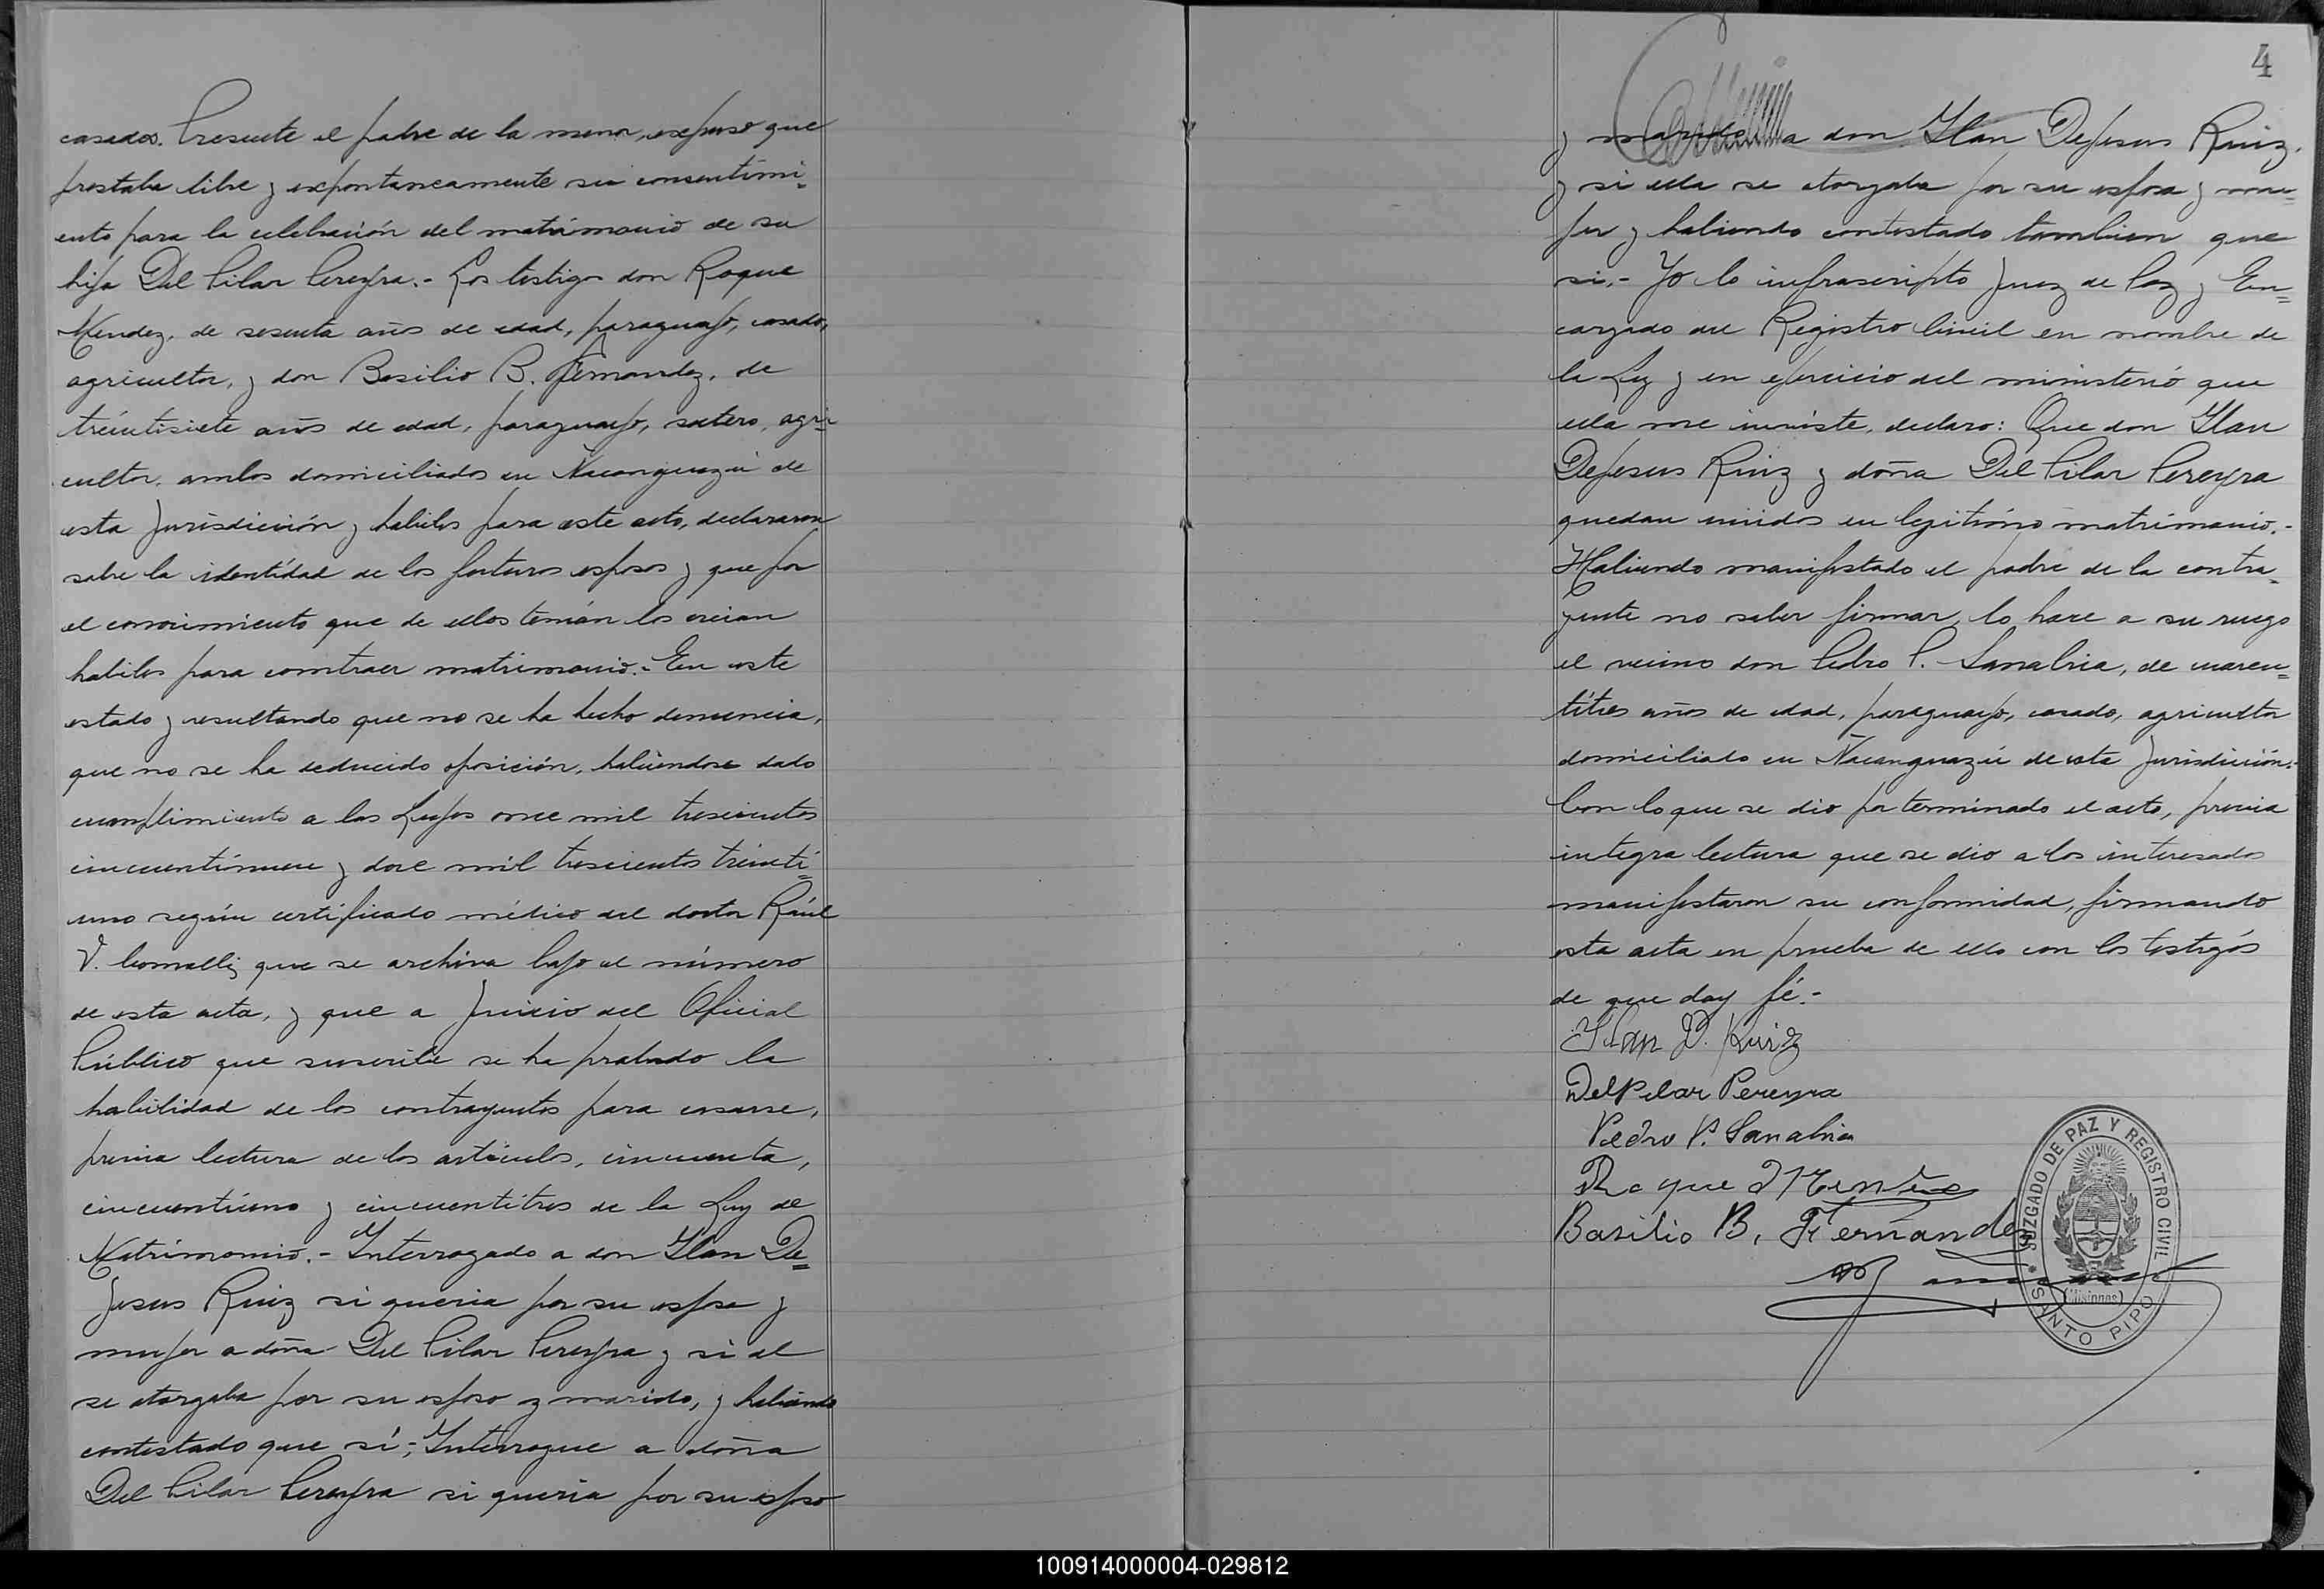 casados. Presente el padre de la menor, expuso que
prestaba libre y expontaneamente su consentimi=
ento para la celebración del matrimonio de su
hija Del Pilar Pereyra.- Los testigos don Roque
Mendez, de sesenta años de edad, paraguayo, casado,
agricultor, y don Basilio B. Fernandez, de
tréintisiete años de edad, paraguayo, soltero, agri=
cultor, ambos domiciliados en Ñacanguazú de
esta Jurisdicción y habiles para este acto, declararon
sobre la identidad de los futuros esposos y que por
el conocimiento que de ellos tenián los creian
habiles para contraer matrimonio.- En este
estado y resultando que no se ha hecho denuncia,
que no se ha deducido oposición, habiéndose dado
cumplimiento a las Leyes once mil trescientos
cincuentinueve y doce mil trescientos tréinti=
uno según certificado médico del doctor Raúl
V. Comolli, que se archiva bajo el número
de esta acta, y que a Juicio del Oficial
Público que suscribe se ha probado la
habilidad de los contrayentes para casarse,
previa lectura de los articulos, cincuenta,
cincuentiuno y cincuentitres de la Ley de
Matrimonio.- Interrogado a don Ylan De=
Jesus Ruiz si queria por su esposa y
mujer a doña Del Pilar Pereyra y si él
se otorgaba por su esposo y marido, y habiendo
contestado que sí; Interrogue a doña
Del Pilar Pereyra si queria por su esposo
4
y marido a don Ylan DeJesus Ruiz,
y si ella se otorgaba por su esposa y mu=
jer y habiendo contestado tambien que
si.- Yo lo infrascripto Juez de Paz y En=
cargado del Registro Civil en nombre de
la Ley y en ejercicio del ministerio que
ella me inviste, declaro: Que don Ylan
DeJesus Ruiz y doña Del Pilar Pereyra
quedan unidos en legitimo matrimonio.-
Habiendo manifestado el padre de la contra=
yente no saber firmar, lo hace a su ruego
el vecino don Pedro P. Sanabria, de cuaren=
titres años de edad, paraguayo, casado, agricultor
domiciliado en Ñacanguazú de esta Jurisdicción.-
Con lo que se dio por terminado el acto, previa
integra lectura que se dio a los interesados
manifestaron su conformidad, firmando
esta acta en prueba de ello con los testigos
de que doy fé.-
Ylan D. Ruiz
Del Pilar Pereyra
Pedro P. Sanabria
Roque Mendes
Basilio B. Fernandez
JUZGADO DE PAZ Y REGISTRO CIVIL
(Misiones)
SANTO PIPO
100914000004-029812